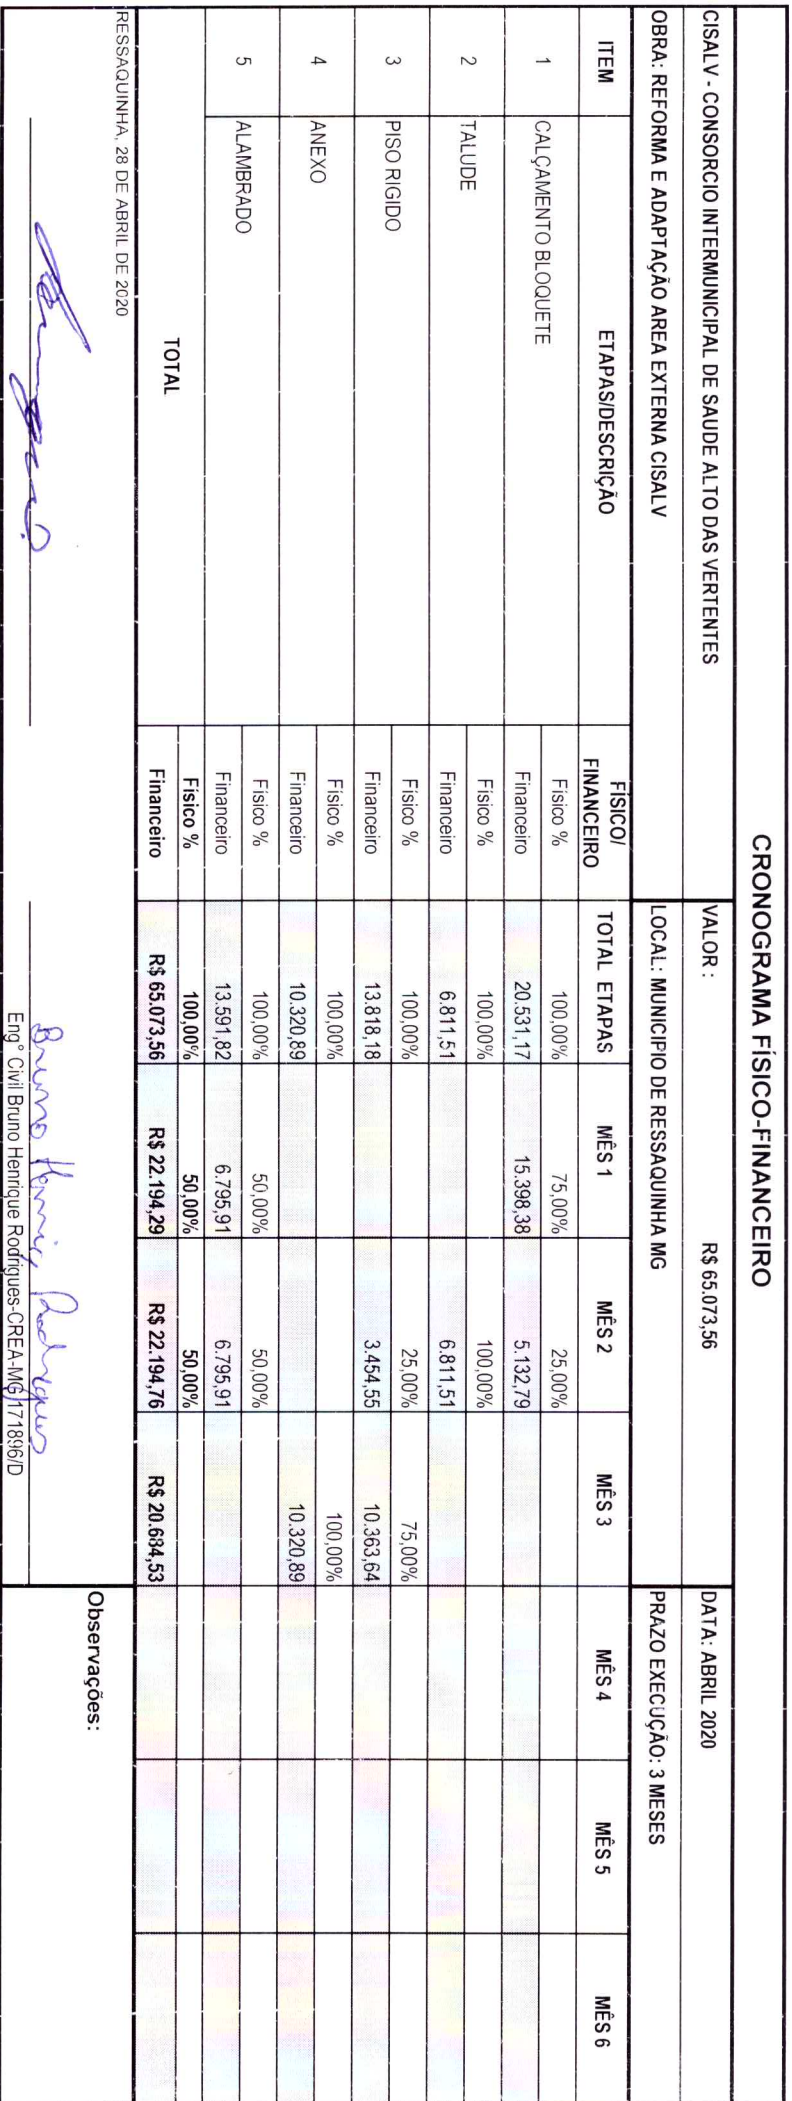 CRONOGRAMA FÍSICO-FINANCEIRO
CISALV - CONSORCIO INTERMUNICIPAL DE SAUDE ALTO DAS VERTENTES VALOR : R$ 65.073,56 DATA: ABRIL 2020
OBRA: REFORMA E ADAPTAÇÃO AREA EXTERNA CISALV LOCAL: MUNICIPIO DE RESSAQUINHA MG PRAZO EXECUÇÃO: 3 MESES
ITEM ETAPAS/DESCRIÇÃO FÍSICO/ FINANCEIRO TOTAL ETAPAS MÊS 1 MÊS 2 MÊS 3 MÊS 4 MÊS 5 MÊS 6
1 CALÇAMENTO BLOQUETE Físico % 100,00% 75,00% 25,00%
Financeiro 20.531,17 15.398,38 5.132,79
2 TALUDE Físico % 100,00% 100,00%
Financeiro 6.811,51 6.811,51
3 PISO RIGIDO Físico % 100,00% 25,00% 75,00%
Financeiro 13.818,18 3.454,55 10.363,64
4 ANEXO Físico % 100,00% 100,00%
Financeiro 10.320,89 10.320,89
5 ALAMBRADO Físico % 100,00% 50,00% 50,00%
Financeiro 13.591,82 6.795,91 6.795,91
TOTAL Físico % 100,00% 50,00% 50,00%
Financeiro R$ 65.073,56 R$ 22.194,29 R$ 22.194,76 R$ 20.684,53
RESSAQUINHA, 28 DE ABRIL DE 2020
Observações:
Bruno Henrique Rodrigues
Eng° Civil Bruno Henrique Rodrigues-CREA-MG 171896/D